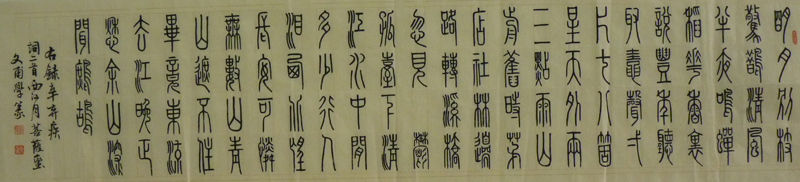 明月別枝
驚鵲清風
半夜鳴蟬
稻花香裏
說豐年聽
取蛙聲一
片七八箇
星天外兩
三點雨山
前舊時茅
店社林邊
路轉溪橋
忽見鬱
孤臺下清
江水中間
多少行人
淚西北望
長安可憐
無數山青
山遮不住
畢竟東流
去江晚正
愁余山深
聞鷓鴣
右錄辛弃疾
詞二首西江月菩薩蛮
文甫學篆